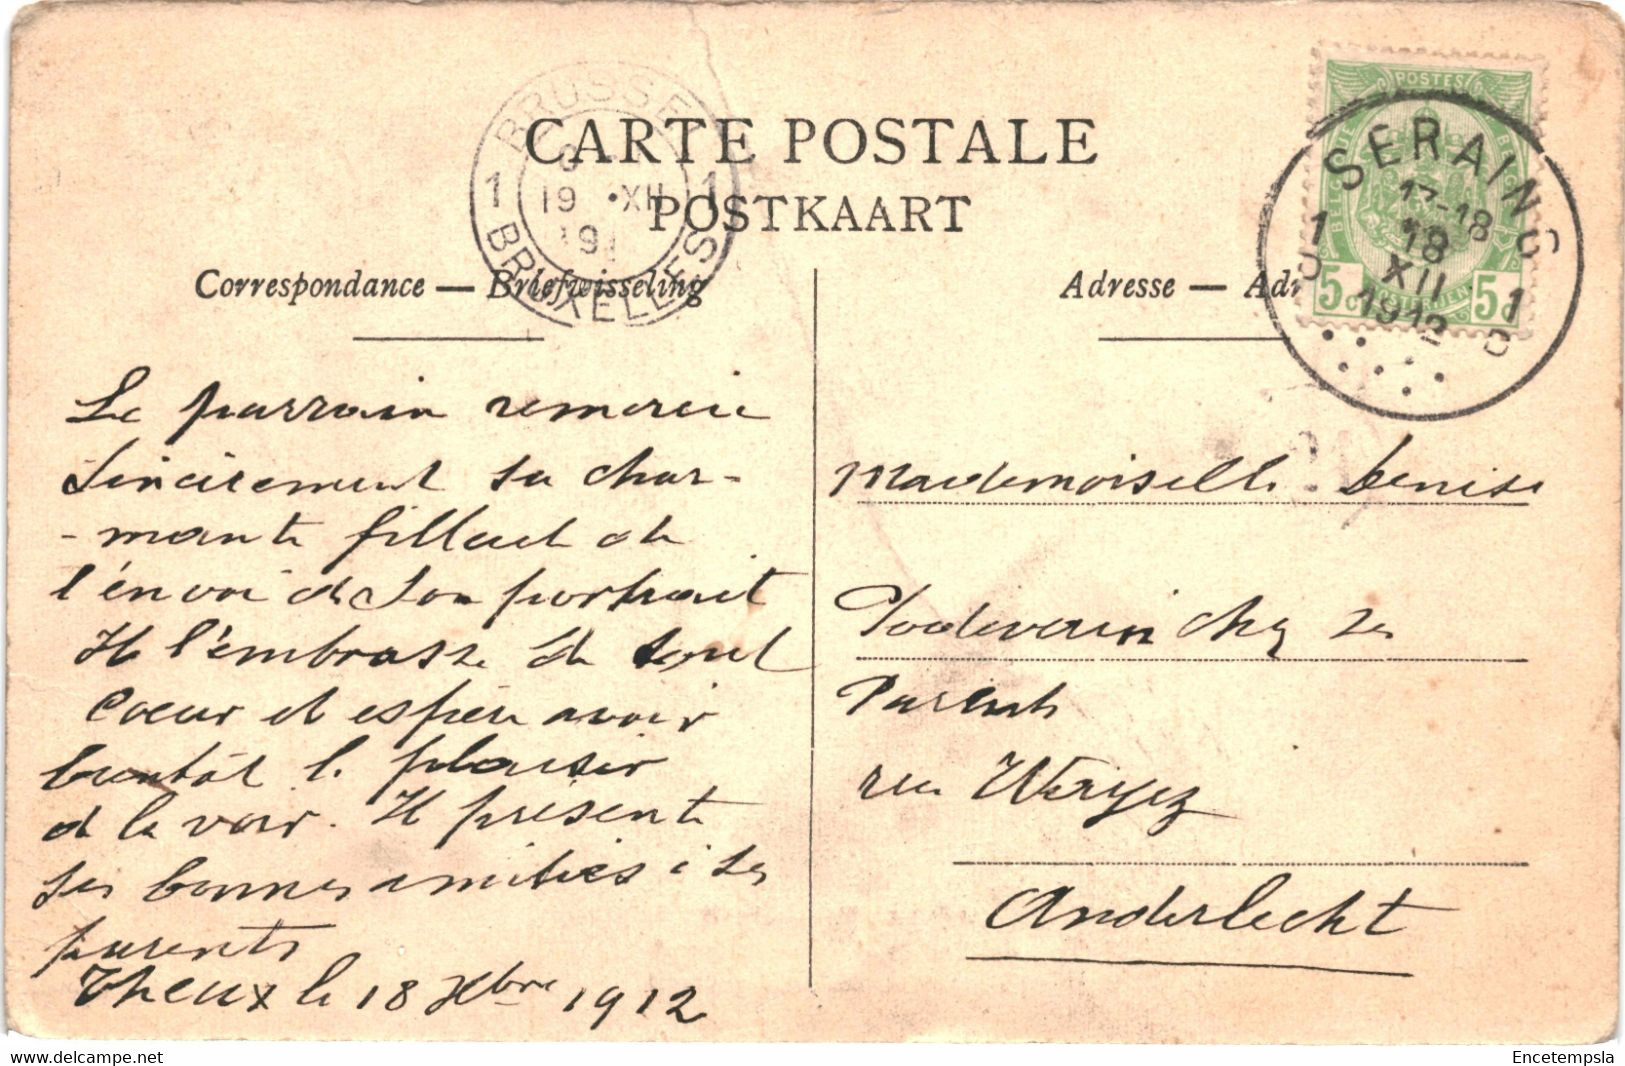 CARTE POSTALE
POSTKAART
Correspondance — Briefwisseling
Adresse —
BRUSSEL
1 19 •XII 1
BRUXELLES
POSTES
SERAING
17-18
18
XII
1912
5c 5c
Le parrain remercie
sincèrement sa char-
-mante filleul de
l'envoi de son portrait
Il l'embrasse de tout
coeur et espère avoir
bientôt le plaisir
d la voir. Il présente
ses bonnes amitiés à ses
parents
Theux le 18 Xbre 1912
Mademoiselle Denise
chez ses
Parents
rue Wayez
Anderlecht
Encetempsla
www.delcampe.net